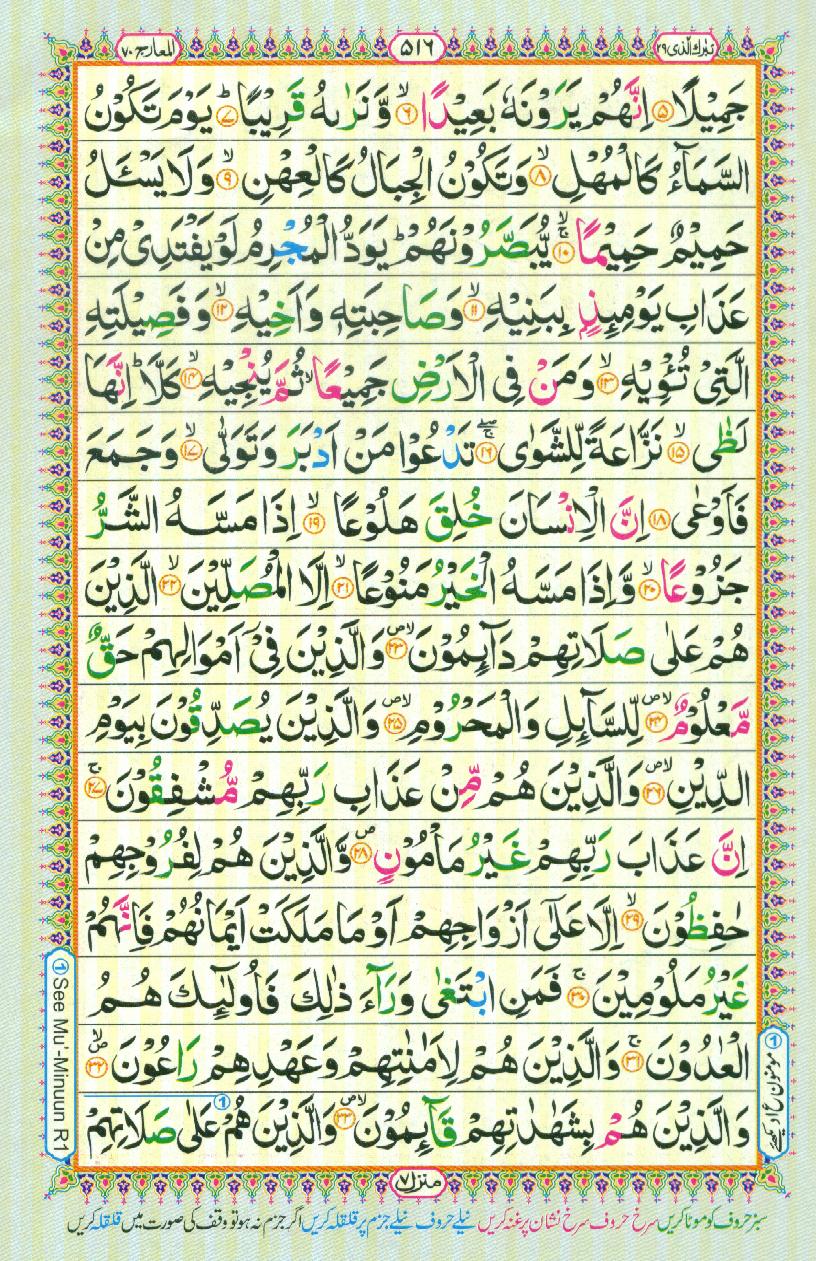 تبٰرك الذی ۲۹
۵۱۶
المعارج ۷۰
جَمِیْلًا ۵ اِنَّهُمْ یَرَوْنَهٗ بَعِیْدًا ۶ۙ وَّ نَرٰىهُ قَرِیْبًا ۷ؕ یَوْمَ تَكُوْنُ
السَّمَآءُ كَالْمُهْلِ ۸ۙ وَ تَكُوْنُ الْجِبَالُ كَالْعِهْنِ ۹ۙ وَ لَا یَسْـَٔلُ
حَمِیْمٌ حَمِیْمًا ۱۰ۚۖ یُّبَصَّرُوْنَهُمْ ؕ یَوَدُّ الْمُجْرِمُ لَوْ یَفْتَدِیْ مِنْ
عَذَابِ یَوْمِىِٕذٍۭ بِبَنِیْهِ ۱۱ۙ وَ صَاحِبَتِهٖ وَ اَخِیْهِ ۱۲ۙ وَ فَصِیْلَتِهِ
الَّتِیْ تُـْٔوِیْهِ ۱۳ۙ وَ مَنْ فِی الْاَرْضِ جَمِیْعًا ۙ ثُمَّ یُنْجِیْهِ ۱۴ۙ كَلَّا ؕ اِنَّهَا
لَظٰى ۱۵ۙ نَزَّاعَةً لِّلشَّوٰى ۱۶ۚۖ تَدْعُوْا مَنْ اَدْبَرَ وَ تَوَلّٰى ۱۷ۙ وَ جَمَعَ
فَاَوْعٰى ۱۸ اِنَّ الْاِنْسَانَ خُلِقَ هَلُوْعًا ۱۹ۙ اِذَا مَسَّهُ الشَّرُّ
جَزُوْعًا ۲۰ۙ وَّ اِذَا مَسَّهُ الْخَیْرُ مَنُوْعًا ۲۱ۙ اِلَّا الْمُصَلِّیْنَ ۲۲ۙ الَّذِیْنَ
هُمْ عَلٰى صَلَاتِهِمْ دَآىِٕمُوْنَ ۲۳ وَ الَّذِیْنَ فِیْۤ اَمْوَالِهِمْ حَقٌّ
مَّعْلُوْمٌ ۲۴ لِّلسَّآىِٕلِ وَ الْمَحْرُوْمِ ۲۵ وَ الَّذِیْنَ یُصَدِّقُوْنَ بِیَوْمِ
الدِّیْنِ ۲۶ وَ الَّذِیْنَ هُمْ مِّنْ عَذَابِ رَبِّهِمْ مُّشْفِقُوْنَ ۲۷ۚ
اِنَّ عَذَابَ رَبِّهِمْ غَیْرُ مَاْمُوْنٍ ۲۸ وَ الَّذِیْنَ هُمْ لِفُرُوْجِهِمْ
حٰفِظُوْنَ ۲۹ۙ اِلَّا عَلٰۤى اَزْوَاجِهِمْ اَوْ مَا مَلَكَتْ اَیْمَانُهُمْ فَاِنَّهُمْ
غَیْرُ مَلُوْمِیْنَ ۳۰ۚ فَمَنِ ابْتَغٰى وَرَآءَ ذٰلِكَ فَاُولٰٓىِٕكَ هُمُ
الْعٰدُوْنَ ۳۱ۚ وَ الَّذِیْنَ هُمْ لِاَمٰنٰتِهِمْ وَ عَهْدِهِمْ رَاعُوْنَ ۳۲
وَ الَّذِیْنَ هُمْ بِشَهٰدٰتِهِمْ قَآىِٕمُوْنَ ۳۳ وَ الَّذِیْنَ هُمْ عَلٰى صَلَاتِهِمْ
① See Mu'-Minuun R1
① مومنون ع ۱ دیکھئے
منزل ۷
سبز حروف کو موٹا کریں سرخ حروف سرخ نشان پر غنہ کریں نیلے حروف نیلے جزم پر قلقلہ کریں اگر جزم نہ ہو تو وقف کی صورت میں قلقلہ کریں